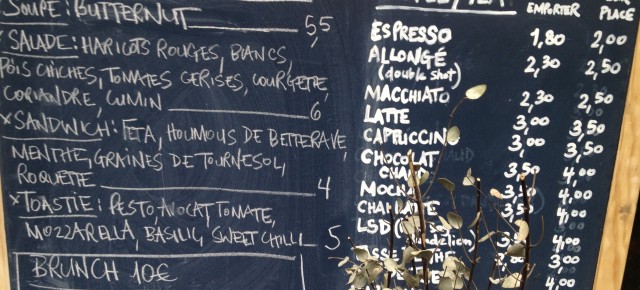 SOUPE : BUTTERNUT 5,5
SALADE : HARICOTS ROUGES, BLANCS,
POIS CHICHES, TOMATES CERISES, COURGETTE,
CORIANDRE, CUMIN 6
*SANDWICH : FETA, HOUMOUS DE BETTERAVE,
MENTHE, GRAINES DE TOURNESOL,
ROQUETTE 4
*TOASTIE : PESTO, AVOCAT, TOMATE,
MOZZARELLA, BASILIC, SWEET CHILLI 5
BRUNCH 10€
EMPORTER PLACE
ESPRESSO 1,80 2,00
ALLONGÉ 2,30 2,50
(double shot)
MACCHIATO 2,30 2,50
LATTE 3,00 3,50
CAPPUCCINO 3,00 3,50
CHOCOLAT
CHAUD 3,50 4,00
MOCHA 3,50 4,00
4,00
LSD 4,00
3,00 4,00
4,00